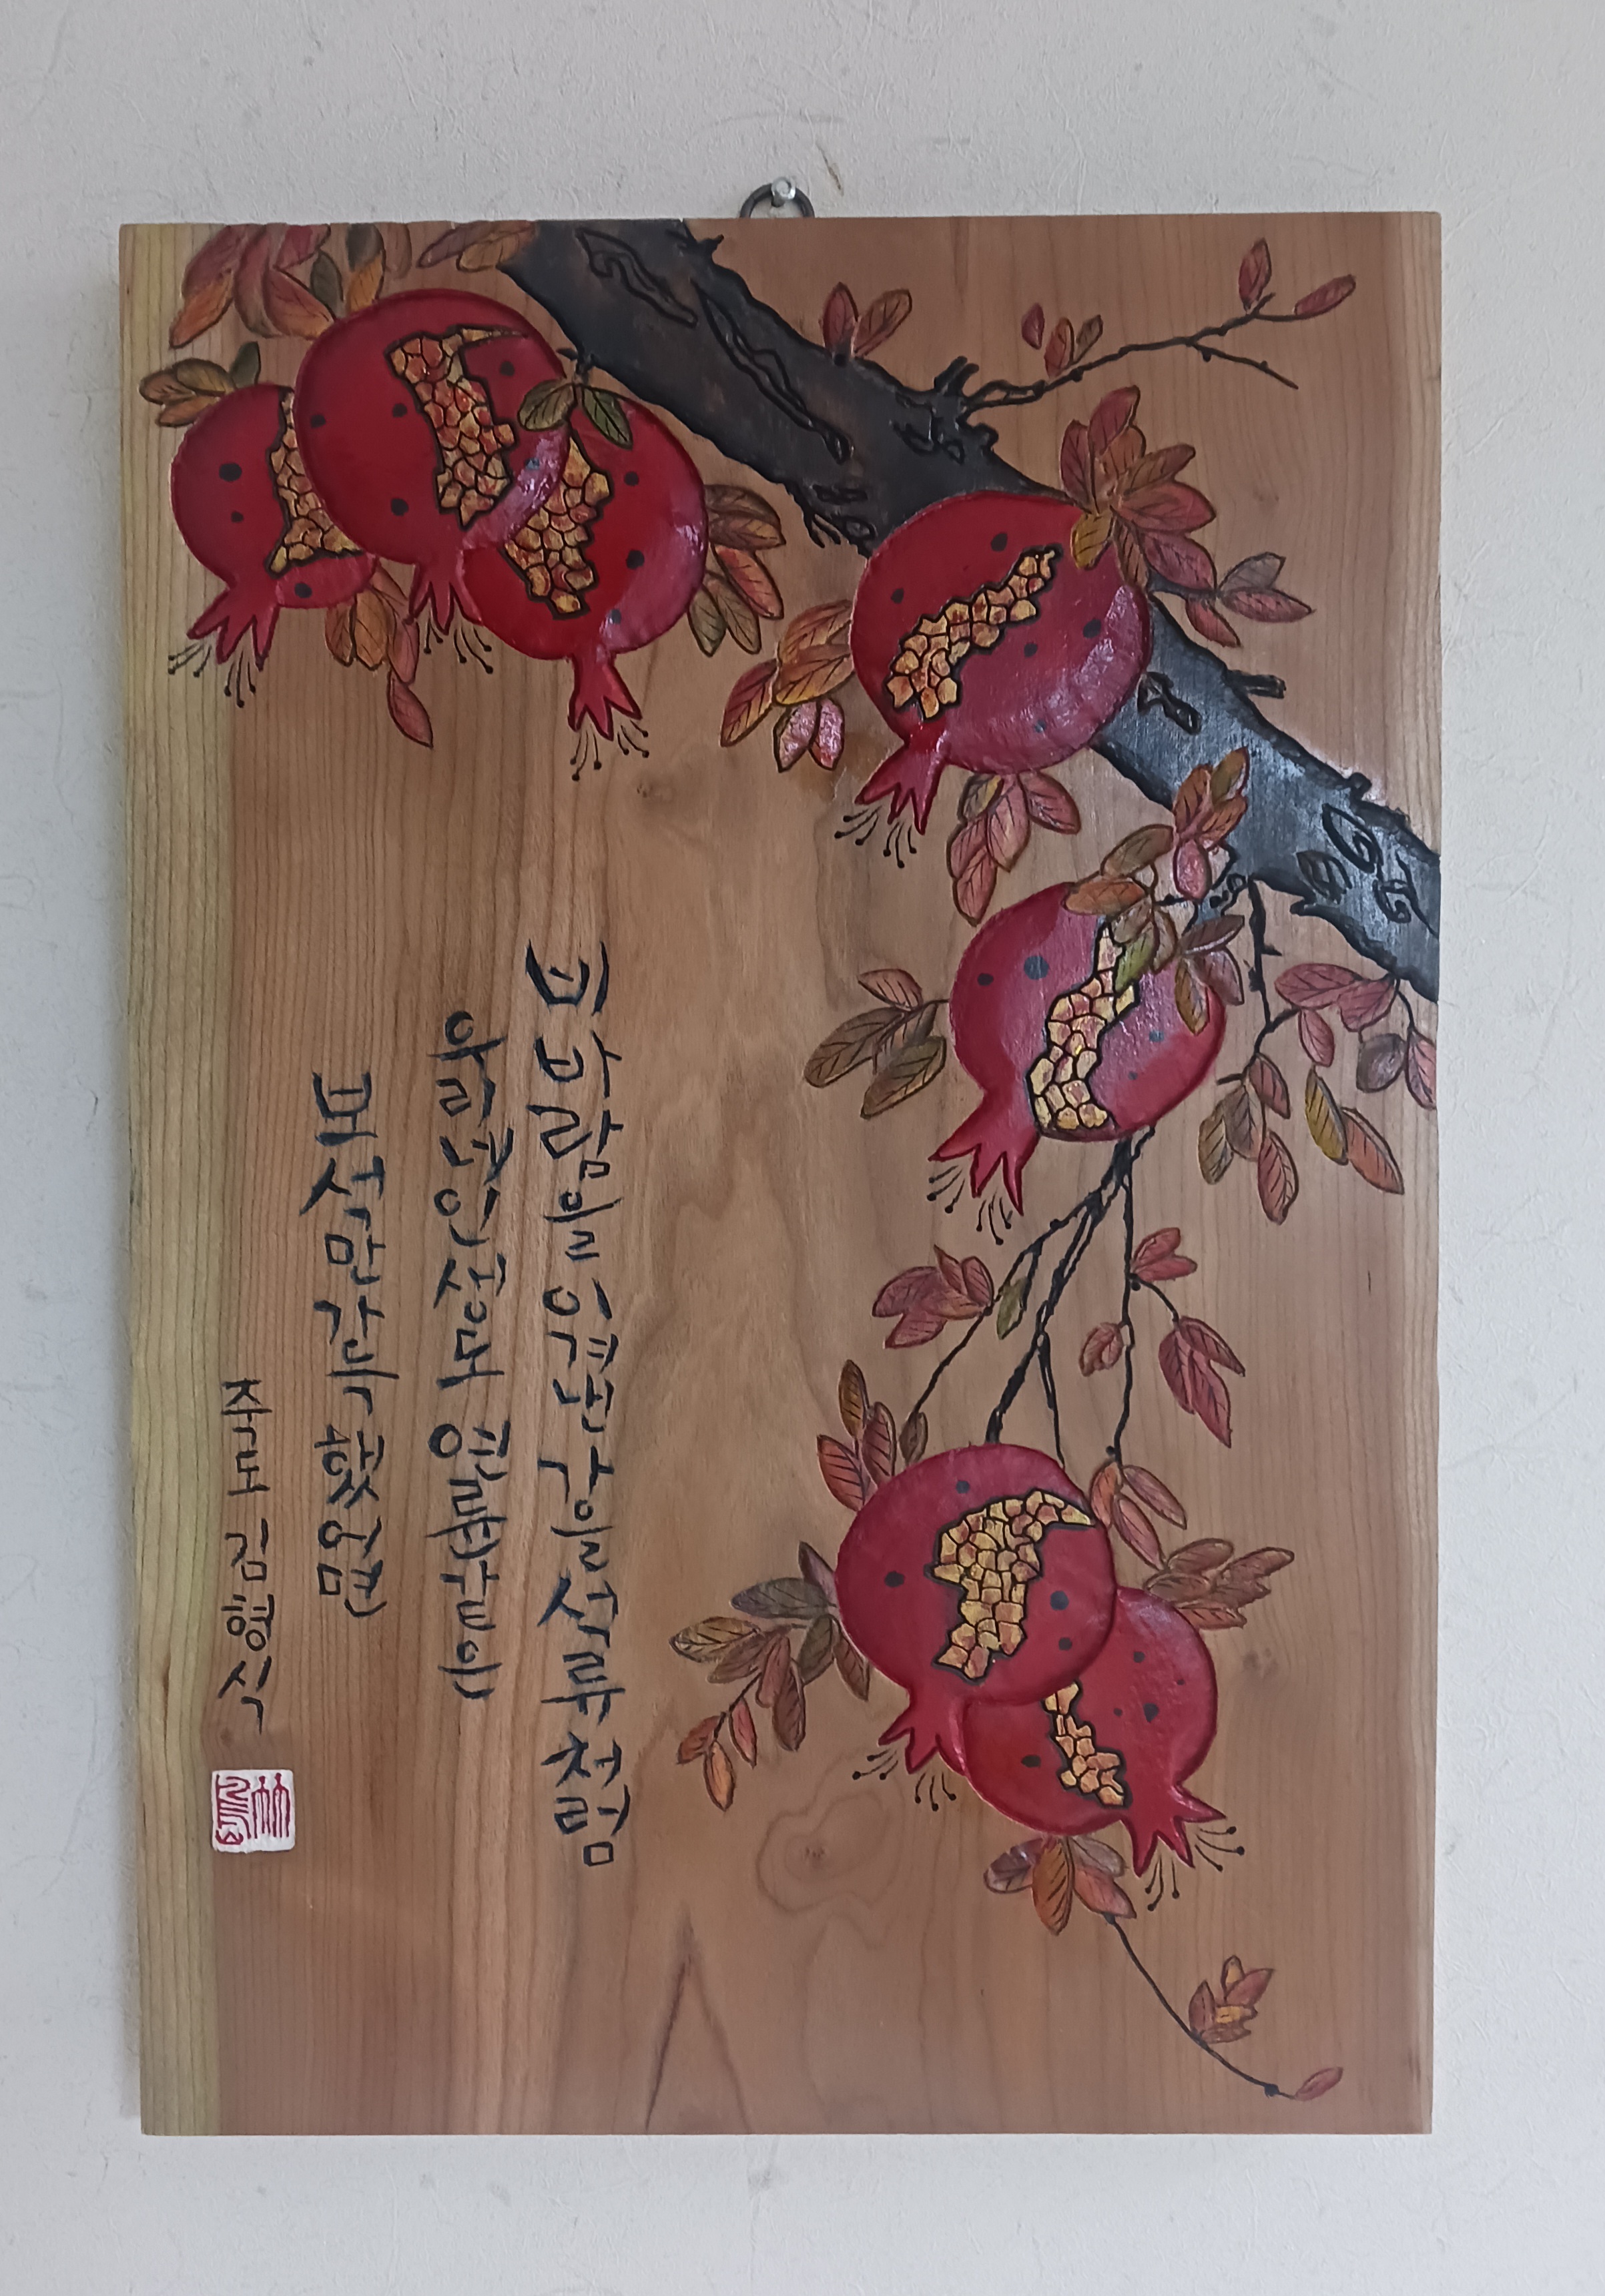 비바람을 이겨낸 가을석류처럼
우리네 인생도
보석만 가득했으면
죽도 김형식